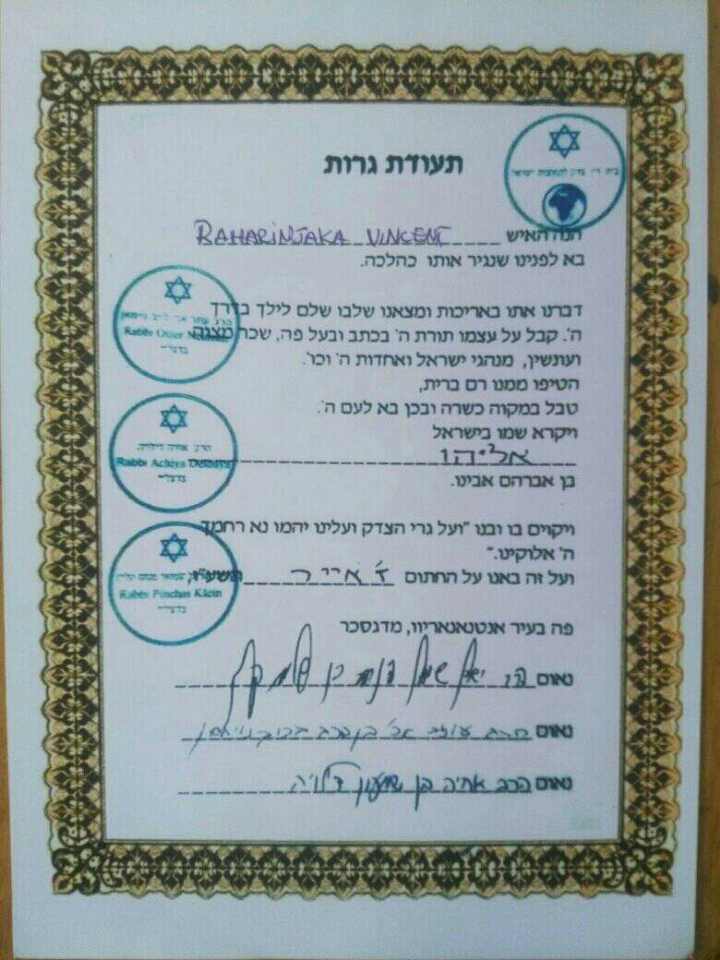 תעודת גרות
הנה האיש RAHARINJAKA VINCENT
בא לפנינו שנגיר אותו כהלכה.
דברנו אתו באריכות ומצאנו שלבו שלם לילך בדרך
ה'. קבל על עצמו תורת ה' בכתב ובעל פה, שכר מצוה
ועונשין, מנהגי ישראל ואחדות ה' וכו'.
הטיפו ממנו דם ברית,
טבל במקוה כשרה ובכן בא לעם ה'.
ויקרא שמו בישראל
אליהו
בן אברהם אבינו.
ויקוים בו ובנו "ועל גרי הצדק ועלינו יהמו נא רחמך
ה' אלוקינו."
ועל זה באנו על החתום אייר תשע"ו,
פה בעיר אנטנאנאריוו, מדגסכר
נאום
נאום
נאום הרב אחיה בן שמעון
Rabbi
Rabbi Achiya
Rabbi Pinchas Klein